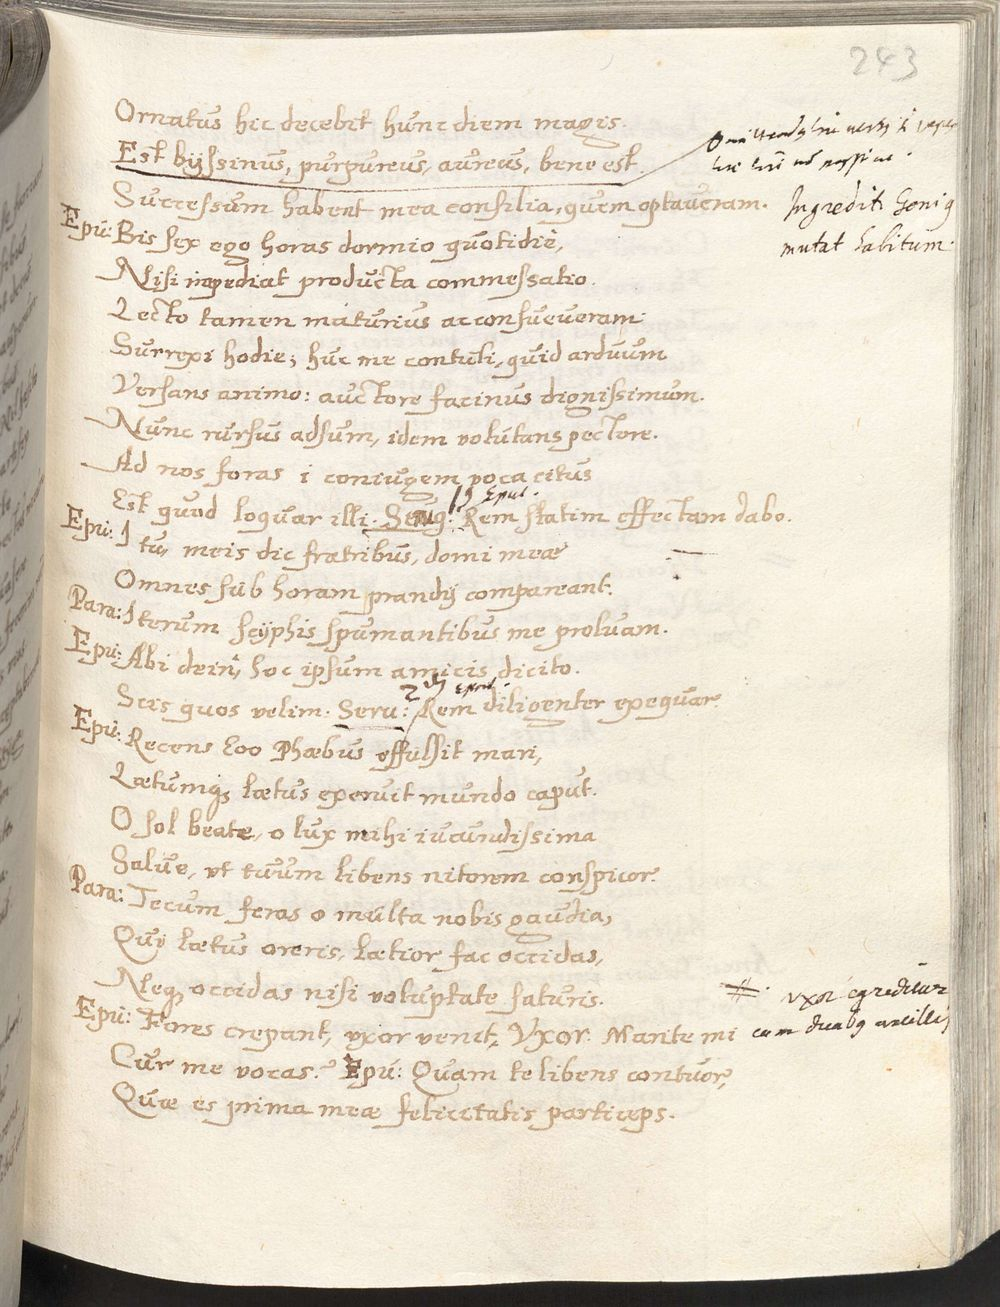 243
Ornatus hic decebit hunc diem magis.
Est byssinus, purpureus, aureus, bene est.
Successum habent mea consilia, quem optaveram.
Ingredit Geni9
mutat habitum.
Epu: Bis sex ego horas dormio quotidiè,
Nisi impediat producta commessatio.
Lecto tamen maturius ac consueveram
Surrexi hodie; huc me contuli, quid arduum
Versans animo: auctore facinus dignissimum.
Nunc rursus adsum, idem volutans pectore.
Ad nos foras i coniugem voca citus
Est quod loquar illi. 19 Epul. Rem statim effectam dabo.
Epu: I tu, meis dic fratribus, domi meæ
Omnes sub horam prandij compareant.
Para: Iterum scyphis spumantibus me proluam.
Epu: Abi dein, hoc ipsum amicis dicito.
Scis quos velim. Seru: 2us Epul. Rem diligenter exequar.
Epu: Recens Eoo Phæbus effulsit mari,
Lætumq; lætus exeruit mundo caput.
O sol beate, o lux mihi iucundissima
Salve, ut tuum libens nitorem conspicor.
Para: Tecum feras o multa nobis gaudia,
Qui lætus oreris, lætior fac occidas,
Neq; occidas nisi voluptate saturis.
# Uxor egreditur
cum duab9 ancillis
Epu: Fores crepant, uxor venit, Uxor. Marite mi
Cur me vocas? Epu: Quam te libens contuor,
Quæ es prima meæ felicitatis particeps.